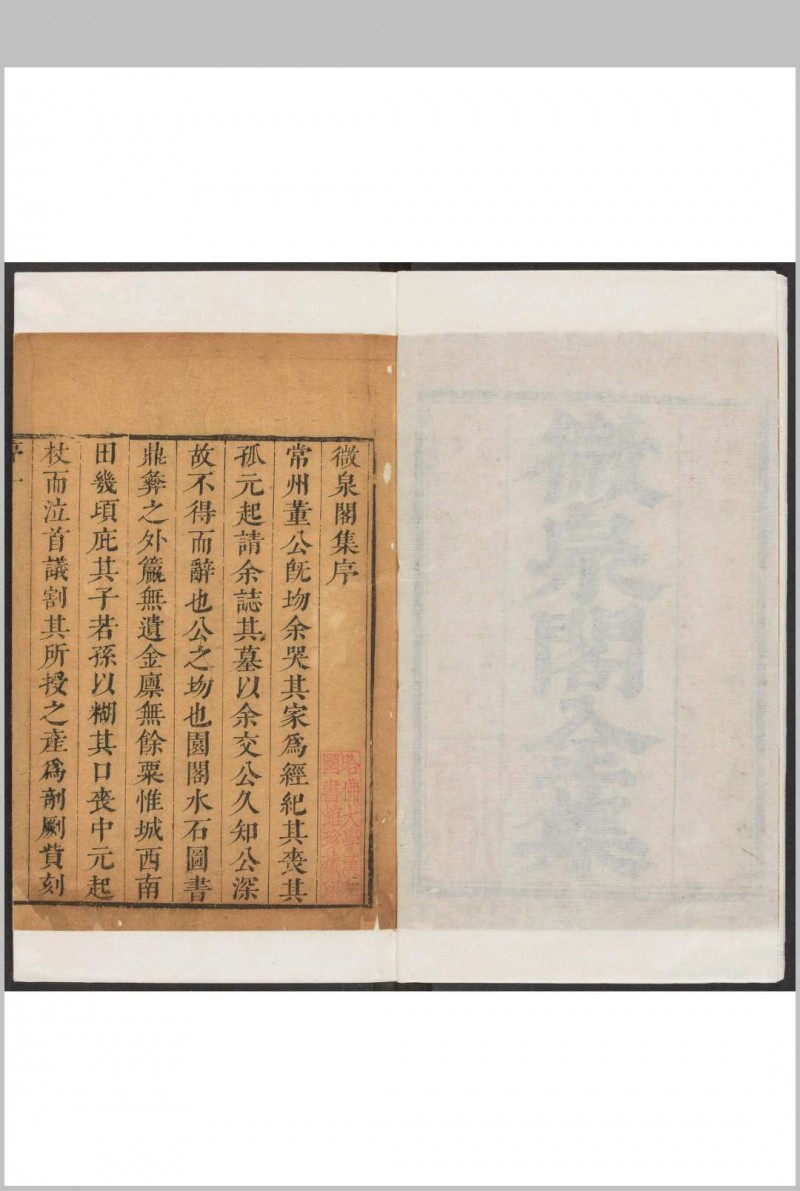 微泉閣集序
常州董公旣歾余哭其家爲經紀其喪其
孤元起請余誌其墓以余交公久知公深
故不得而辭也公之歾也園閣水石圖書
鼎彝之外籯無遺金廩無餘粟惟城西南
田幾頃庇其子若孫以糊其口喪中元起
杖而泣首議割其所授之產爲剞劂貲刻
序一
微泉閣全集
哈佛大學漢和
圖書館珍藏印